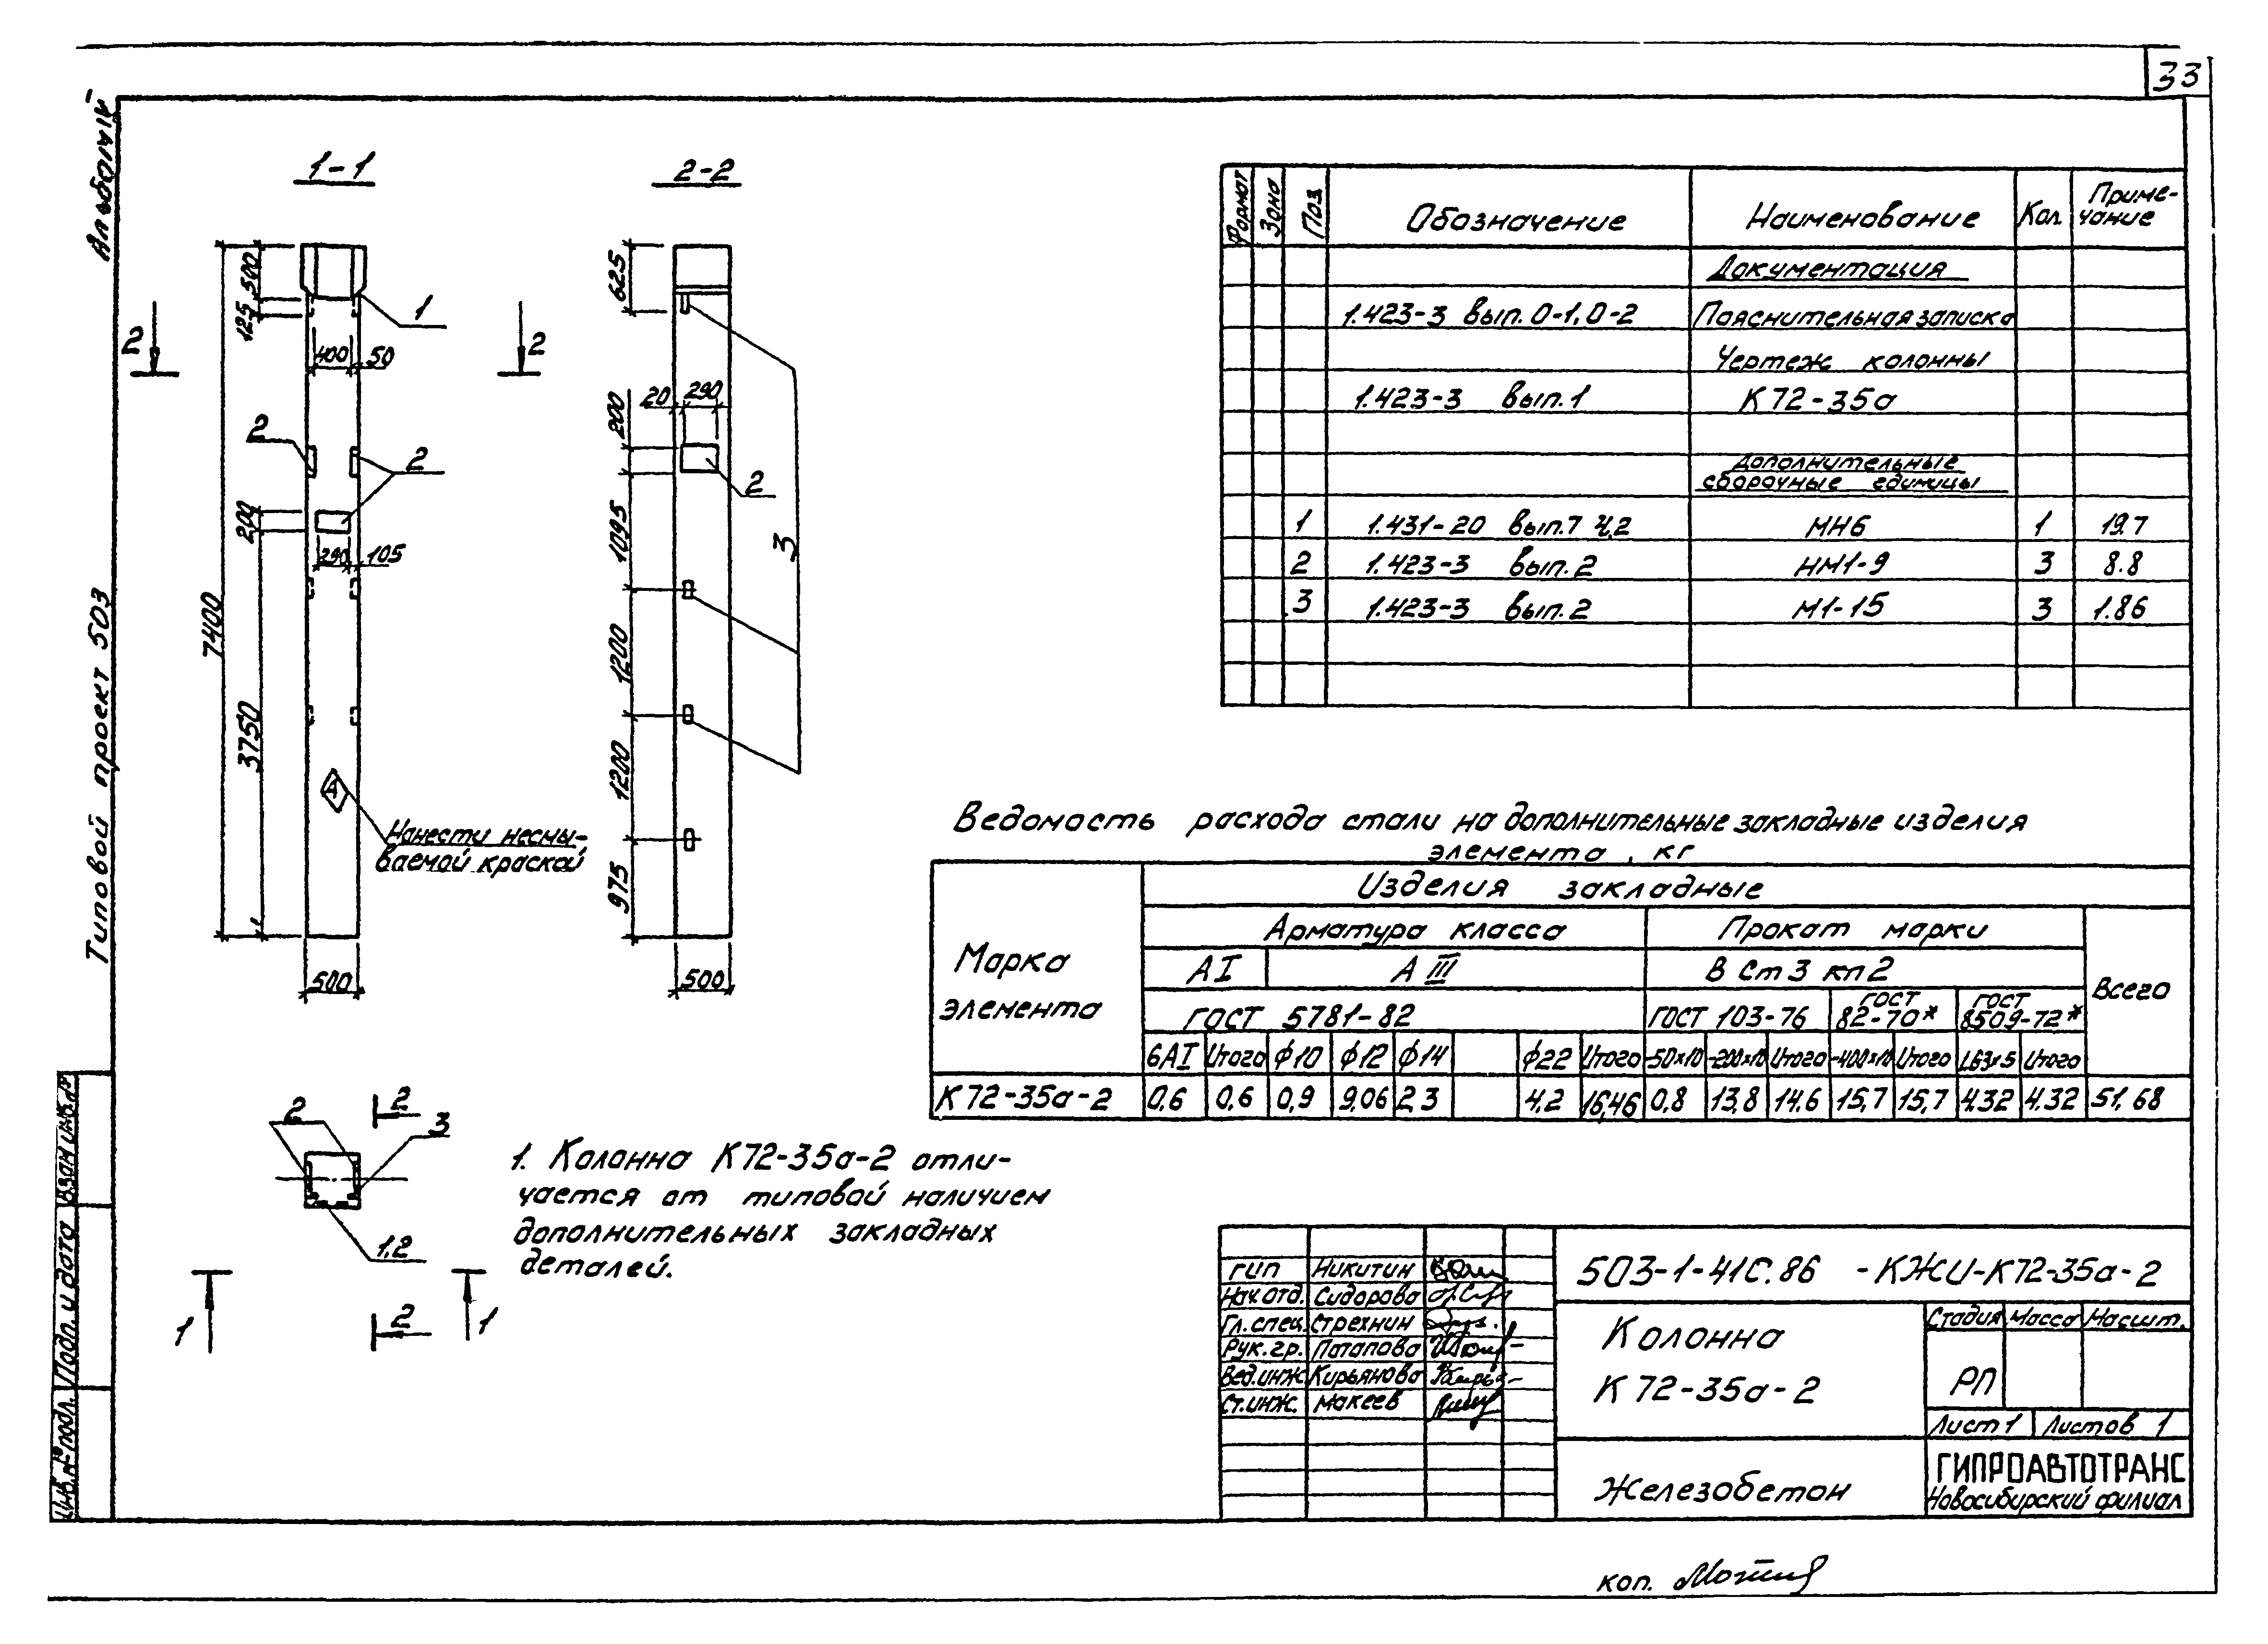 33
Альбом IV
Типовой проект 503
1-1
2-2
7400
500
125
400
50
1
2
2
2
2
200
290
105
3750
А
Нанести несмы-
ваемой краской
500
625
20
290
200
2
1095
3
1200
1200
975
500
2
2
3
1,2
2
1
1
1. Колонна К72-35а-2 отли-
чается от типовой наличием
дополнительных закладных
деталей.
Формат Зона Поз. Обозначение Наименование Кол. Приме-
чание
Документация
1.423-3 вып. 0-1, 0-2 Пояснительная записка
Чертеж колонны
1.423-3 вып. 1 К72-35а
Дополнительные
сборочные единицы
1 1.431-20 вып. 7 ч.2 МН6 1 19.7
2 1.423-3 вып. 2 НМ1-9 3 8.8
3 1.423-3 вып. 2 М1-15 3 1.86
Ведомость расхода стали на дополнительные закладные изделия
элемента, кг
Марка
элемента
Изделия закладные
Арматура класса Прокат марки Всего
АI АIII ВСт3кп2
ГОСТ 5781-82 ГОСТ 103-76 ГОСТ
82-70* ГОСТ
8509-72*
6АI Итого ф10 ф12 ф14 ф22 Итого -50×10 -200×10 Итого -400×10 Итого L63×5 Итого
К72-35а-2 0,6 0,6 0,9 9,06 2,3 4,2 16,46 0,8 13,8 14,6 15,7 15,7 4.32 4.32 51,68
ГИП Никитин
Нач. отд. Сидорова
Гл. спец. Стрехнин
Рук. гр. Потапова
Вед. инж. Кирьянова
Ст. инж. Макеев
503-1-41С.86 -КЖИ-К72-35а-2
Колонна
К72-35а-2
Стадия Масса Масшт.
РП
Лист 1 Листов 1
Железобетон
ГИПРОАВТОТРАНС
Новосибирский филиал
Инв. № подл. Подп. и дата Взам. инв. №
коп.